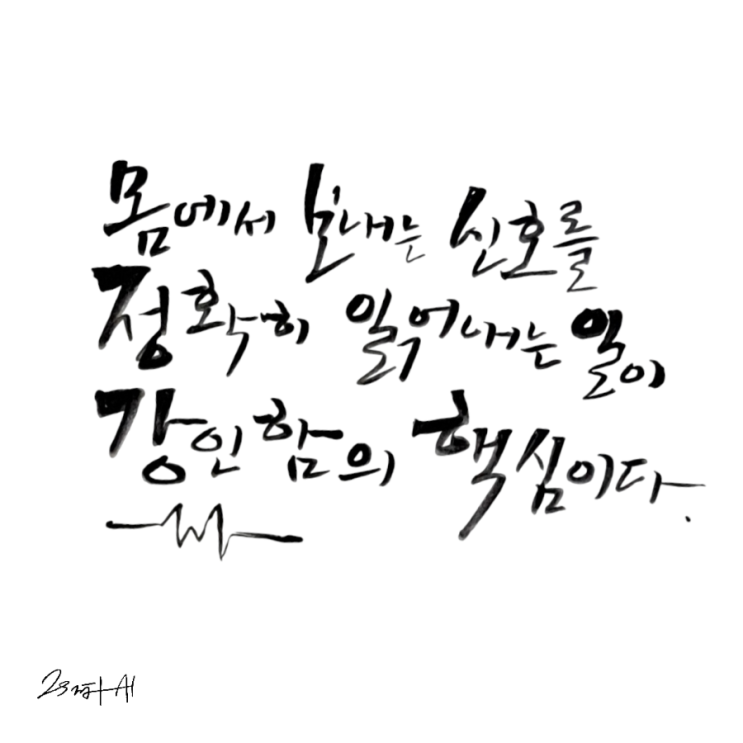 몸에서 보내는 신호를
정확히 읽어내는 일이
강인함의 핵심이다.